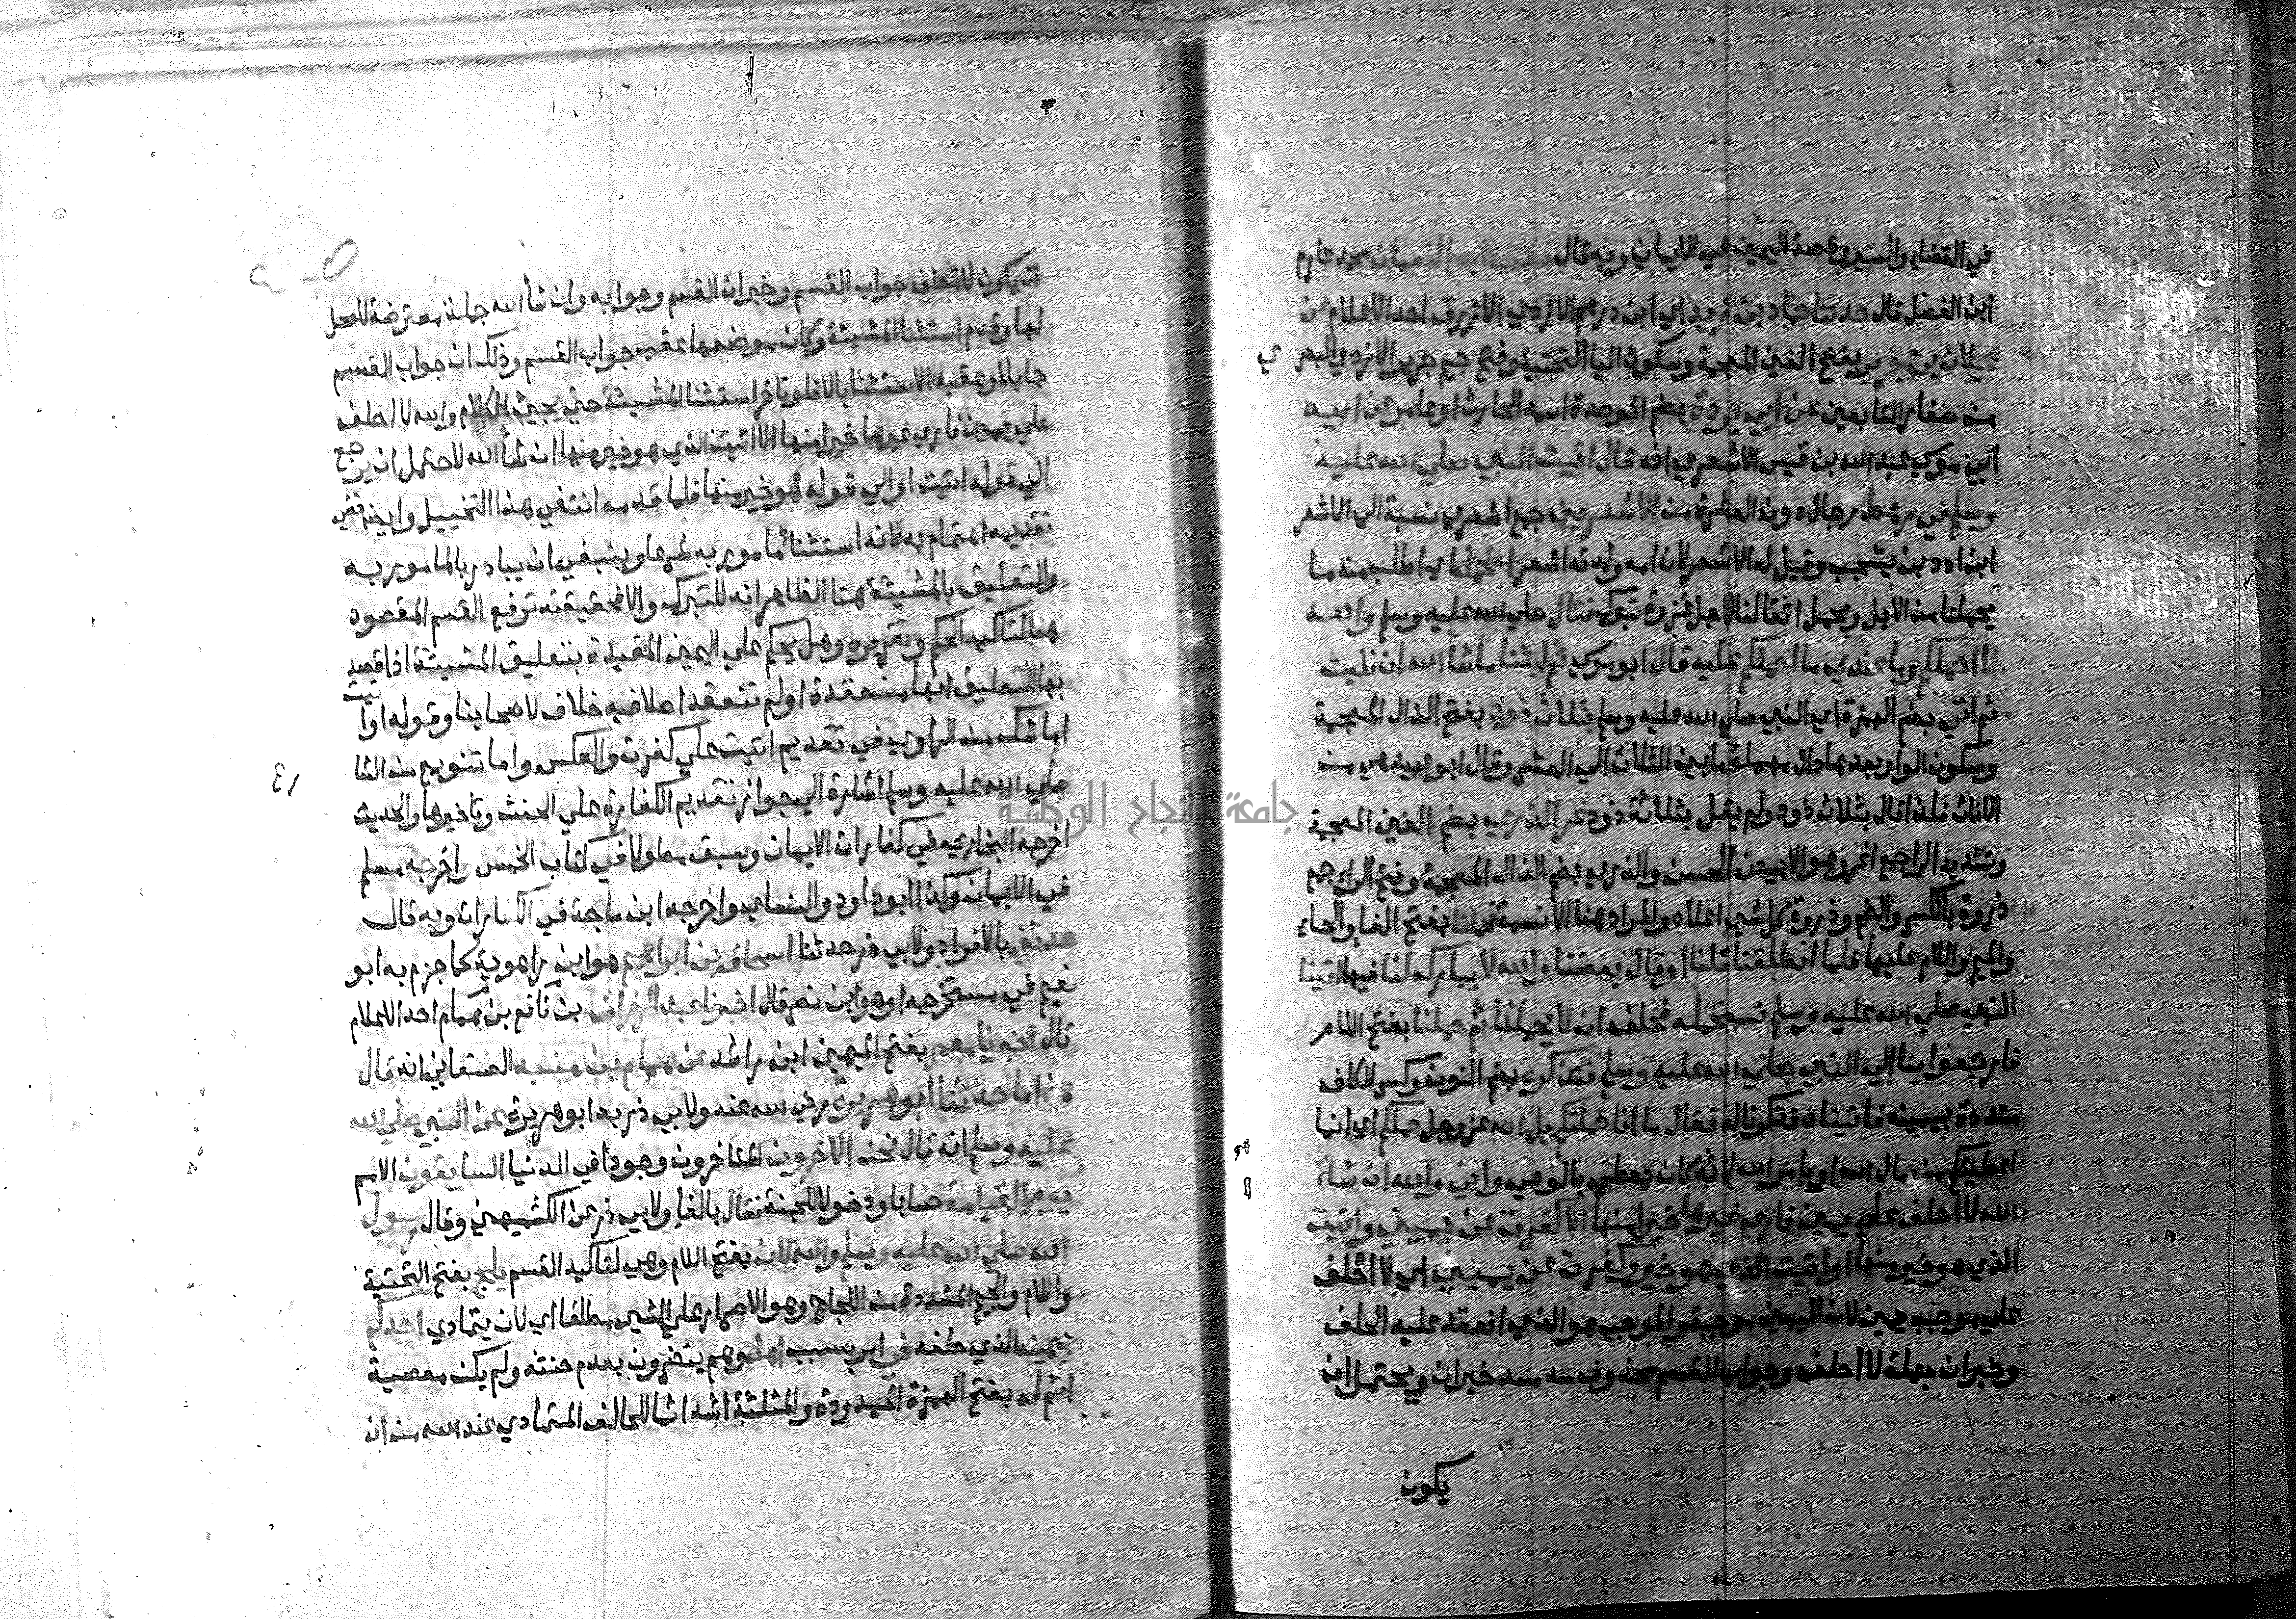 في القضاء والسير وقصة اليمين في الايمان وبه قال حدثنا ابو النعمان محمد عارم
ابن الفضل قال حدثنا حماد بن زيد اي ابن درهم الازدي الازرق احد الاعلام عن
غيلان بن جرير بفتح الغين المعجمة وسكون اليا التحتية وفتح جيم جرير الازدي البصري
من صغار التابعين عن ابي بردة بضم الموحدة اسمه الحارث او عامر عن ابيه
ابي موسي عبد الله بن قيس الاشعري انه قال اتيت النبي صلي الله عليه
وسلم في رهط رجال دون العشرة من الاشعريين جمع اشعري نسبة الي الاشعر
ابن ادد بن يشجب وقيل له الاشعر لان امه ولدته اشعر استحمله اي اطلب منه ما
يحملنا من الابل ويحمل اثقالنا لاجل غزوة تبوك فقال صلي الله عليه وسلم والله
لا احملكم وما عندي ما احملكم عليه قال ابو موسي ثم لبثنا ما شأ الله ان نلبث
ثم اتي بضم الهمزة اي النبي صلي الله عليه وسلم بثلاث ذود بفتح الذال المعجمة
وسكون الواو بعدها دال مهملة ما بين الثلاث الي العشر وقال ابو عبيد هي من
الاناث فلذا قال بثلاث ذود ولم يقل بثلاثة ذود غر الذري بضم الغين المعجمة
وتشديد الرا جمع اغر وهو الابيض الحسن والذري بضم الذال المعجمة وفتح الرا جمع
ذروة بالكسر والضم وذروة كل شي اعلاه والمراد هنا الاسنمة فحملنا بفتح الفا والحا
والميم واللام عليها فلما انطلقنا قلنا او قال بعضنا والله لا يبارك لنا فيها اتينا
النبي صلي الله عليه وسلم نستحمله فحلف ان لا يحملنا ثم حملنا بفتح اللام
فارجعوا بنا الي النبي صلي الله عليه وسلم فنذكره بضم النون وكسر الكاف
مشددة بيمينه فاتيناه فذكرنا له فقال ما انا حملتكم بل الله عز وجل حملكم اي انما
اعطيتكم من مال الله او بامر الله لانه كان يعطي بالوحي واني والله ان شاء
الله لا احلف علي يمين فاري غيرها خيرا منها الا كفرت عن يميني واتيت
الذي هو خير منها او اتيت الذي هو خير وكفرت عن يميني اي لا احلف
علي موجب يمين لان اليمين موجبة والموجب هو الذي انعقد عليه الحلف
وخبر ان جملة لا احلف وجواب القسم محذوف سد مسد خبر ان ويحتمل ان
يكون
ان يكون لا احلف جواب القسم وخبر ان القسم وجوابه وان شأ الله جملة معترضة لا محل
لها وقدم استثنا المشيئة وكان موضعها عقب جواب القسم وذلك ان جواب القسم
جا بلا وعقبه الاستثنا بالا فلو تاخر استثنا المشيئة حتي يجيئ الكلام والله لا احلف
علي يمين فاري غيرها خيرا منها الا اتيت الذي هو خير منها ان شأ الله لاحتمل ان يرجع
الي قوله اتيت او الي قوله هو خير منها فلما قدمه انتفي هذا التخييل وايضا ففي
تقديمه اهتمام به لانه استثنا مامور به شرعا وينبغي ان يبادر بالمامور به
والتعليق بالمشيئة هنا الظاهر انه للتبرك والا فحقيقته ترفع القسم المقصود
هنا لتاكيد الحكم وتقريره وهل يحكم علي اليمين المقيدة بتعليق المشيئة اذا قصد
بها التعليق انها منعقدة او لم تنعقد اصلا فيه خلاف لاصحابنا وقوله او اتيت
اما شك من الراوي في تقديم اتيت علي كفرت والعكس واما تنويع من الشا
صلي الله عليه وسلم اشارة الي جواز تقديم الكفارة علي الحنث وتاخيرها والحديث
اخرجه البخاري في كفارات الايمان وسبق مطولا في كتاب الخمس واخرجه مسلم
في الايمان وكذا ابو داود والنساي واخرجه ابن ماجة في الكفارات وبه قال
حدثني بالافراد ولابي ذر حدثنا اسحاق بن ابراهيم هو ابن راهويه كما جزم به ابو
نعيم في مستخرجه او هو ابن نصر قال اخبرنا عبد الرزاق بن نافع بن همام احد الاعلام
قال اخبرنا معمر بفتح الميمين ابن راشد عن همام بن منبه الصنعاني انه قال
هذا ما حدثنا ابو هريرة رضي الله عنه ولابي ذر به ابو هريرة عن النبي صلي الله
عليه وسلم انه قال نحن الاخرون المتاخرون وجودا في الدنيا السابقون الامم
يوم القيامة حسابا ودخولا للجنة فقال بالفا ولابي ذر عن الكشميهني وقال رسول
الله صلي الله عليه وسلم والله لان بفتح اللام وهي لتاكيد القسم يلج بفتح التحتية
واللام والجيم المشددة من اللجاج وهو الاصرار علي الشي مطلقا اي لان يتمادي احدكم
بيمينه الذي حلفه في امر بسبب اهله وهم يتضررون بعدم حنثه ولم يكن معصية
اثم له بفتح الهمزة الممدودة والمثلثة اشد اثما للحالف المتمادي عند الله من ان
جامعة النجاح الوطنية